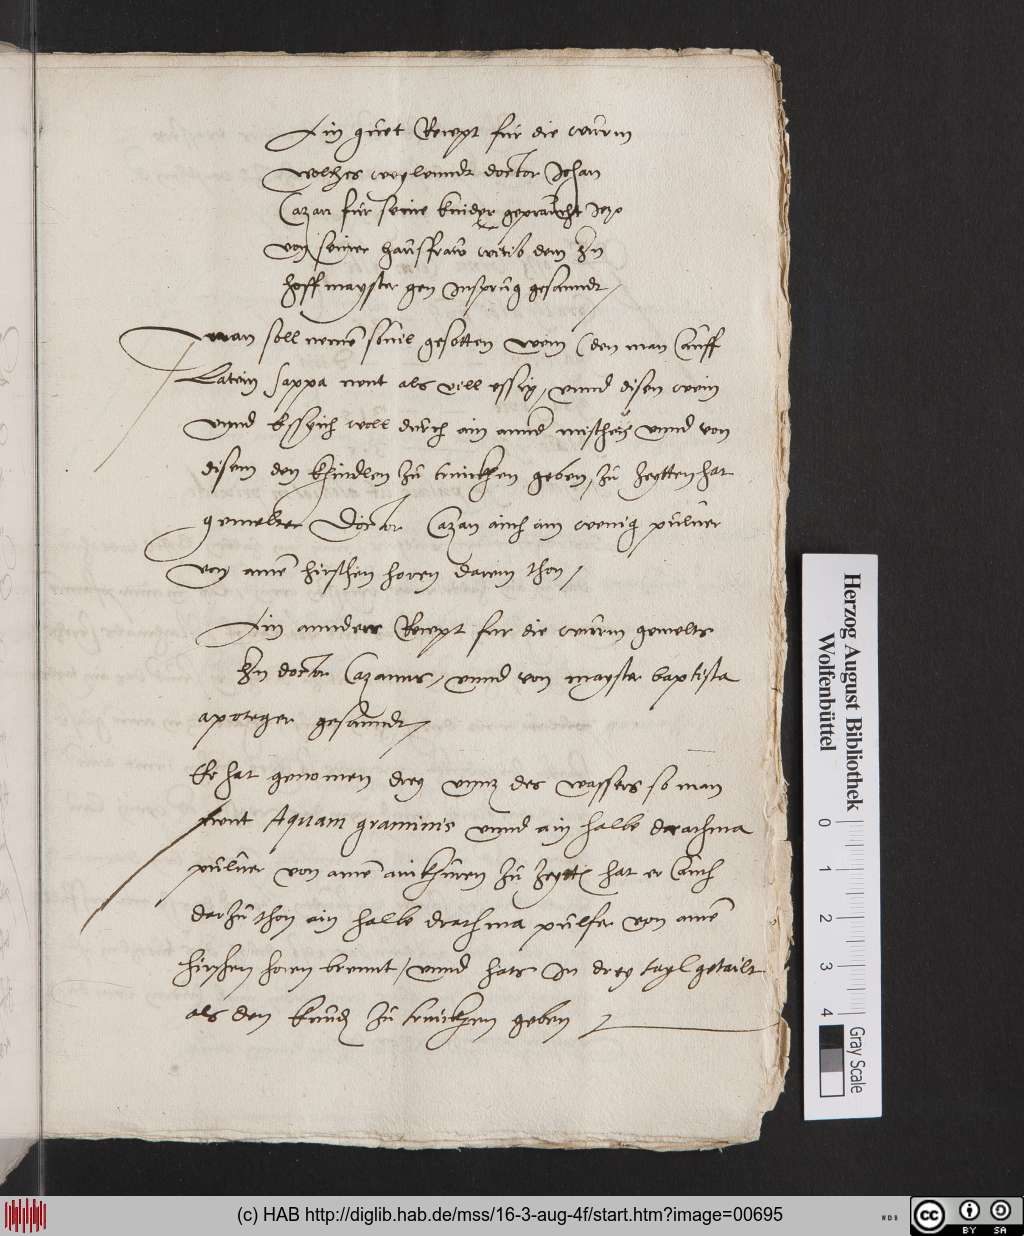 Ain guet Recept für die würm
welches weyleundt doctor Johan
Cazan für seine kinder gepraucht Jezo
von seiner hausfraw witib dem hn
hoffmayster gen Insprug gesanndt /
Man soll nemen souil gesotten wein den man auff
Latein sappa nent als vill essig, vnnd disen wein
vnnd Essich woll durch ain annd mischen vnnd von
disem den khindlen zu trinckhen geben, zu zeytten hat
gemelter Doctor Cazan auch ain wenig puluer
von aim hirschen horen darein thon /
Ain annders Recept fur die würm gemelts
hn doctor Cazanns, vnnd von mayster baptista
apoteger gesanndt /
Er hat genomen drey vnnz des wassers so man
nent Aquam graminis vnnd ain halbe drachma
puluer von aim ainkhüren zu zeytt hat er auch
darzu thon ain halbe drachma pulfer von aim
hirschen horen brennt, vnnd hats In drey tayl getailt
als den kündt zu trinckhen geben
Herzog August Bibliothek
Wolfenbüttel
0 1 2 3 4
Gray Scale
(c) HAB http://diglib.hab.de/mss/16-3-aug-4f/start.htm?image=00695
WDB
cc BY SA